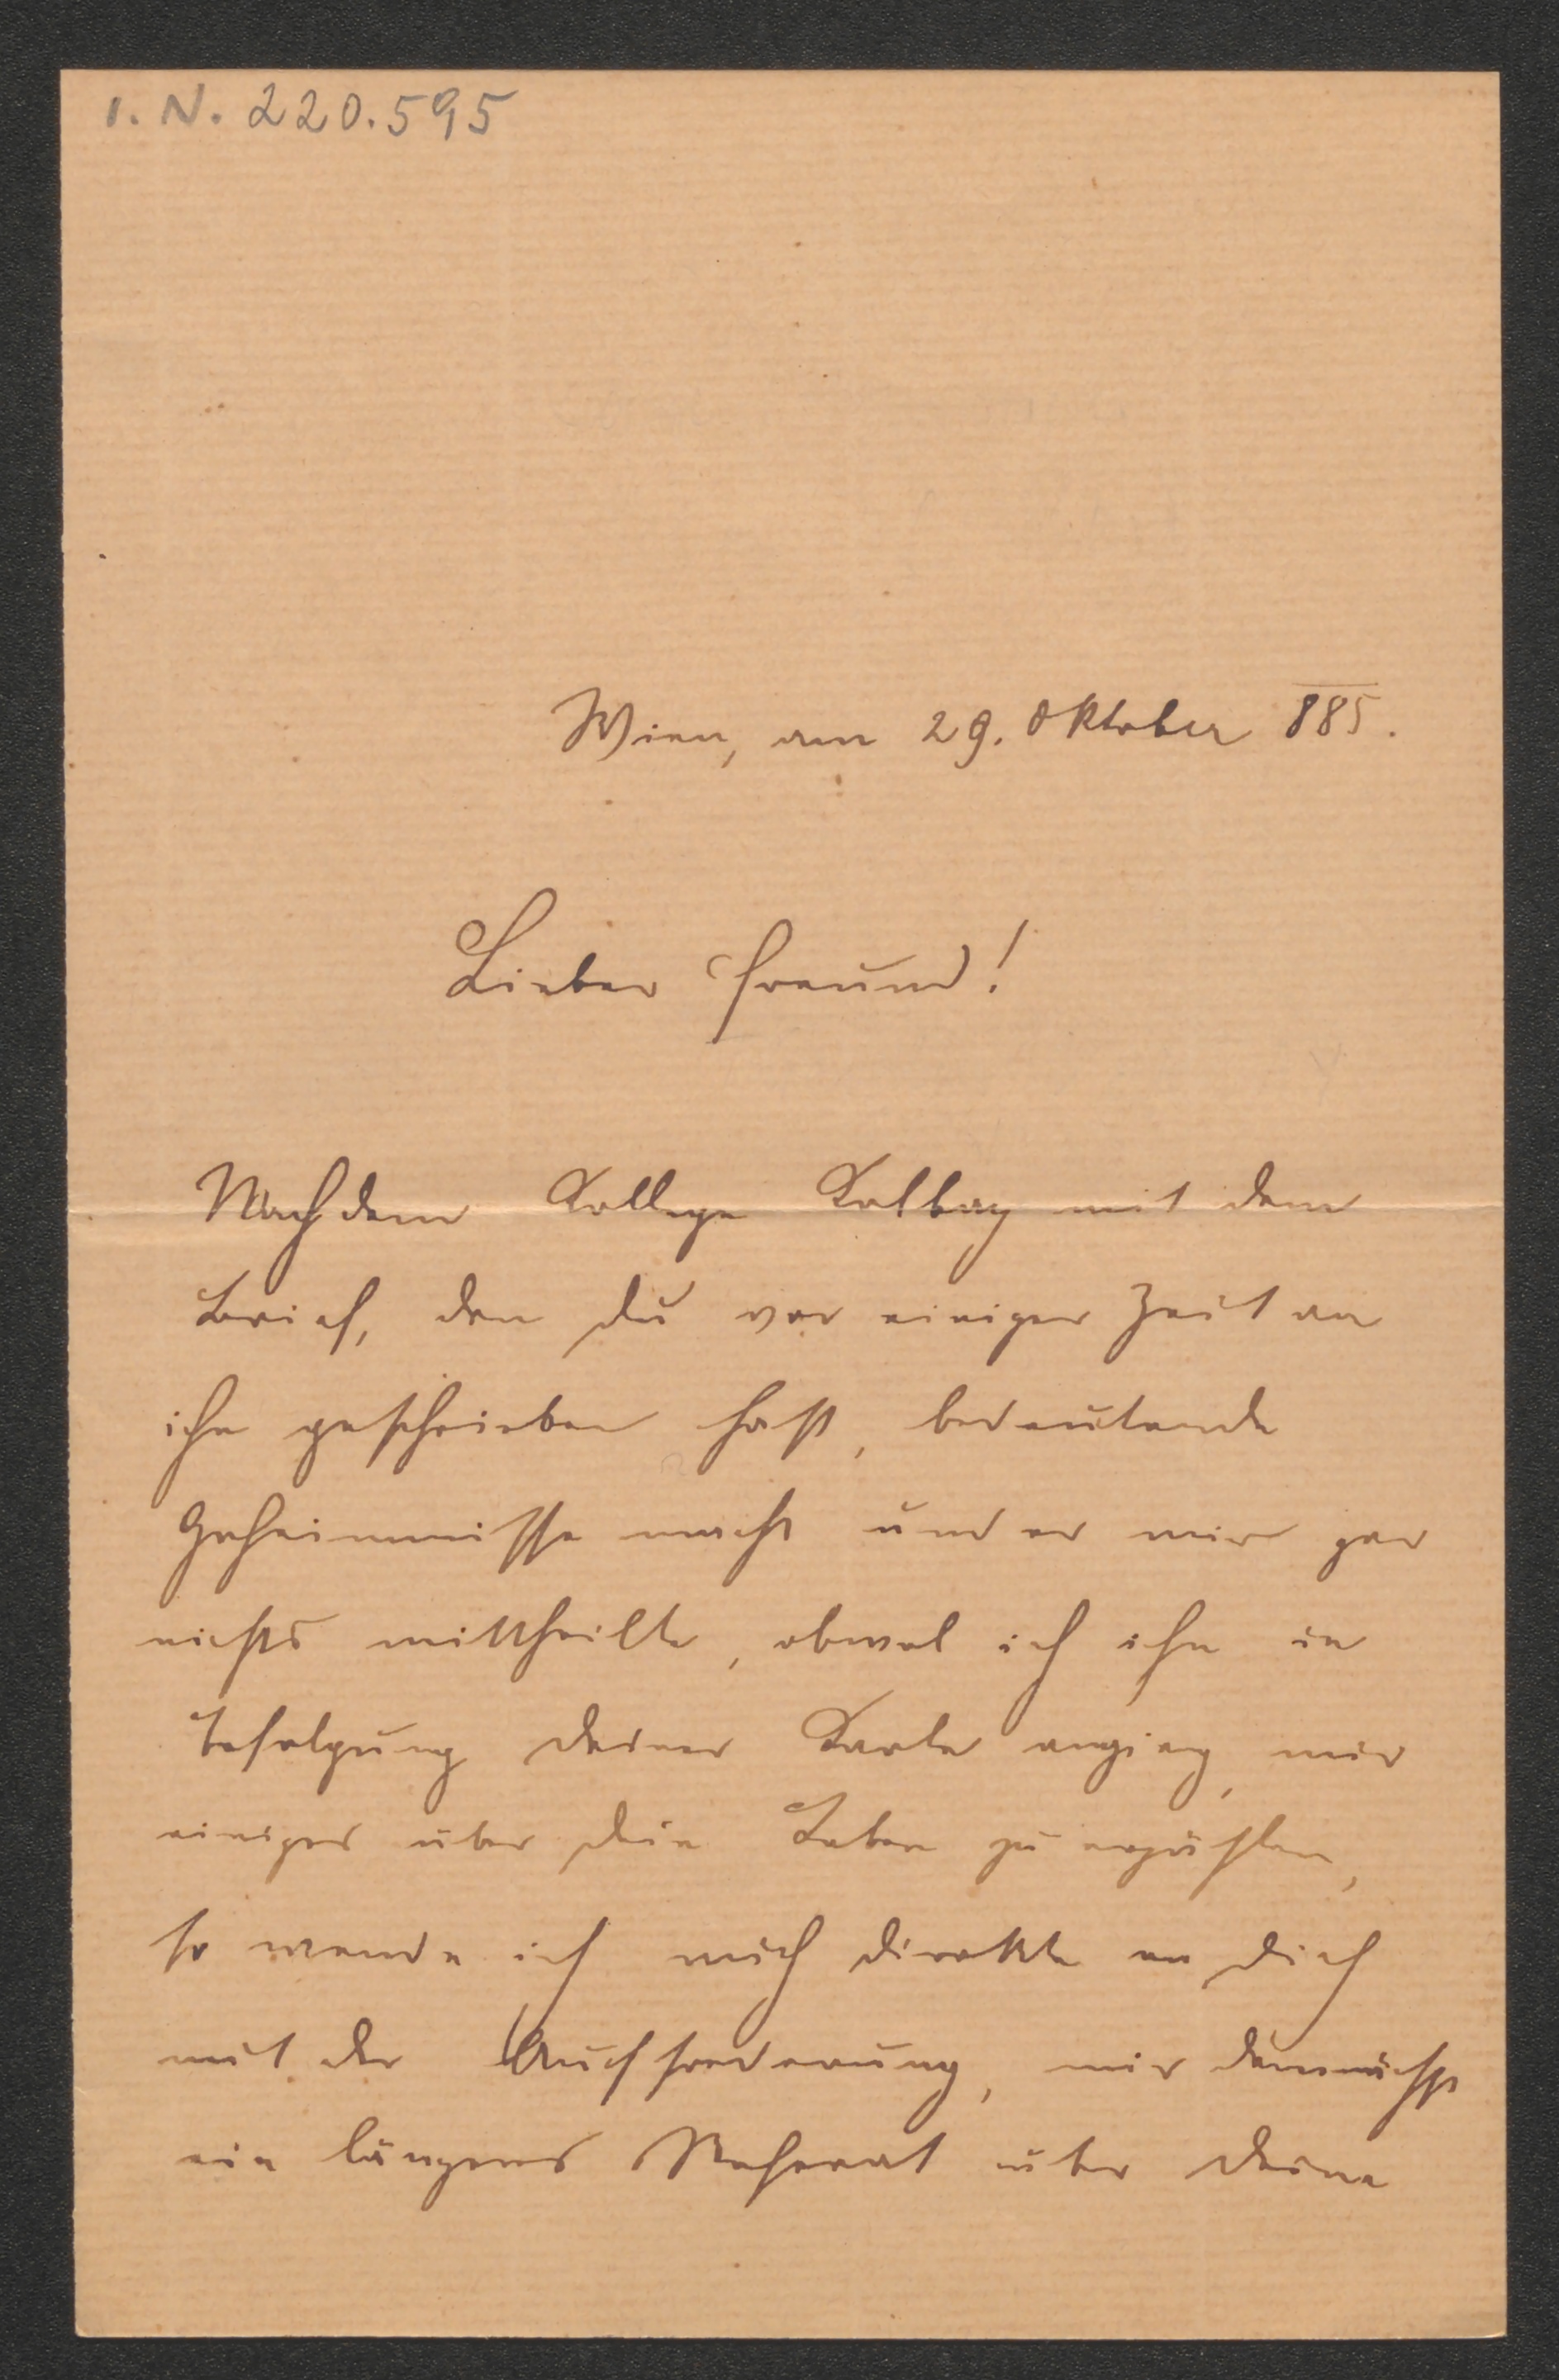 I. N. 220.595
Wien, am 29. Oktober 885.
Lieber Freund!
Nachdem Kollege Kolbay mit dem
Brief, den Du vor einiger Zeit an
ihn geschrieben hast, bedeutende
Geheimnisse macht und er mir gar
nichts mittheilte, obwol ich ihn in
Befolgung Deiner Karte anging, mir
einiges über Dein Leben zu erzählen,
so wende ich mich direkte an Dich
mit der Aufforderung, mir demnächst
ein längeres Referat über Deine